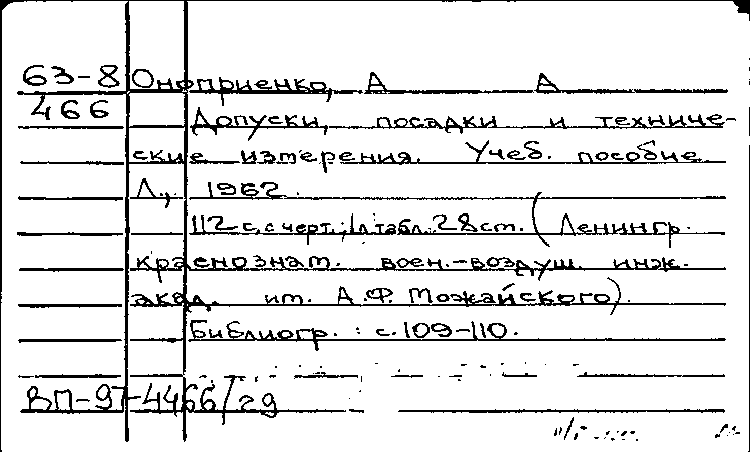 63-8 Оноприенко, А А
466 Допуски, посадки и техниче-
ские измерения. Учеб. пособие
Л., 1962.
112 с. с черт.; 1 л табл. 28 см. (Ленингр.
краснознам. воен.-воздуш. инж.
акад. им. А.Ф. Можайского).
Библиогр.: с. 109-110.
ВП-97-4466/29